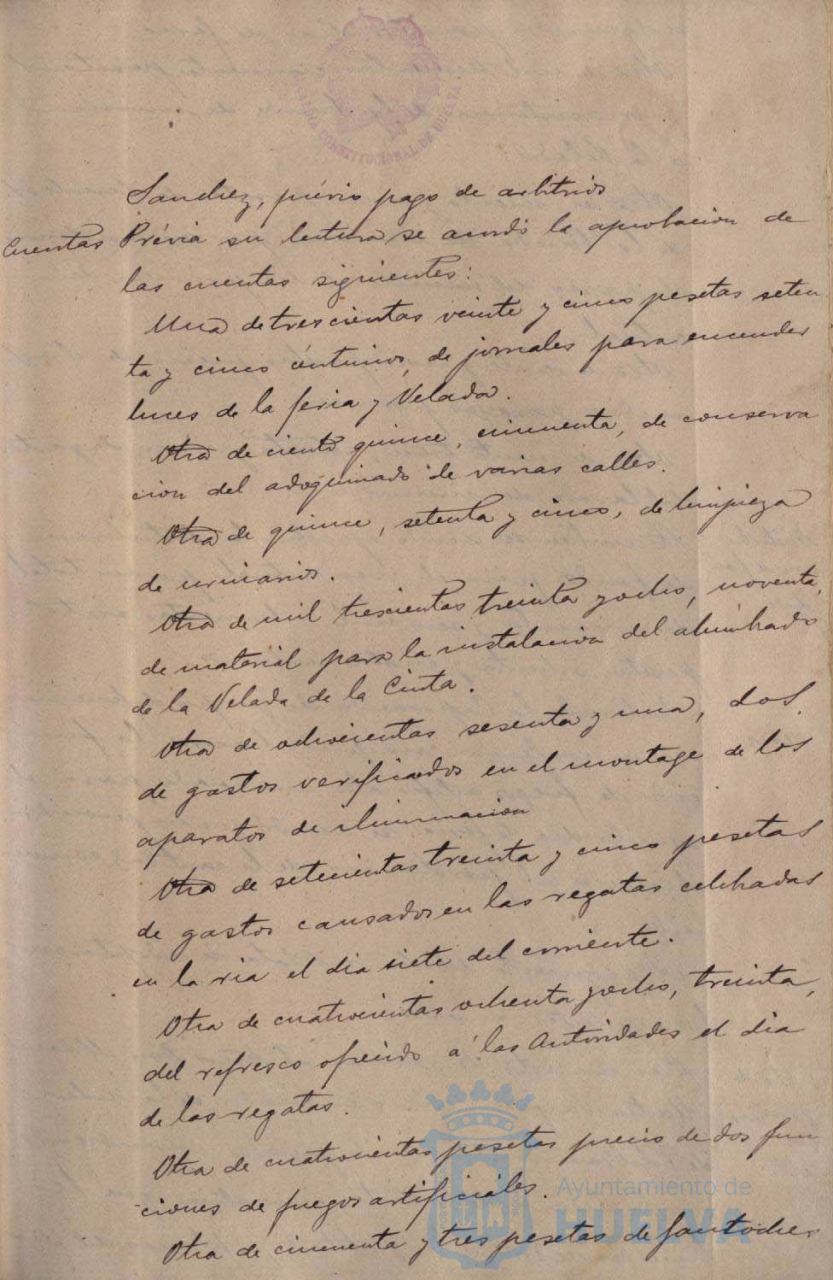 ALCALDIA CONSTITUCIONAL DE HUELVA
Sanchez, prévio pago de arbitrios
Cuentas Prévia su lectura se acordó la aprobacion de
las cuentas siguientes:
Una de trescientas veinte y cinco pesetas seten
ta y cinco céntimos, de jornales para encender
luces de la feria y Velada.
Otra de ciento quince, cincuenta, de conserva
cion del adoquinado de varias calles.
Otra de quince, setenta y cinco, de limpieza
de urinarios.
Otra de mil trescientas treinta y ocho, noventa,
de material para la instalacion del alumbrado
de la Velada de la Cinta.
Otra de ochocientas sesenta y una, dos,
de gastos verificados en el montage de los
aparatos de iluminacion
Otra de setecientas treinta y cinco pesetas
de gastos causados en las regatas celebradas
en la ria el dia siete del corriente.
Otra de cuatrocientas ochenta y ocho, treinta,
del refresco ofrecido á las Autoridades el dia
de las regatas.
Otra de cuatrocientas pesetas precio de dos fun
ciones de fuegos artificiales.
Otra de cincuenta y tres pesetas de fantoches
Ayuntamiento de
HUELVA